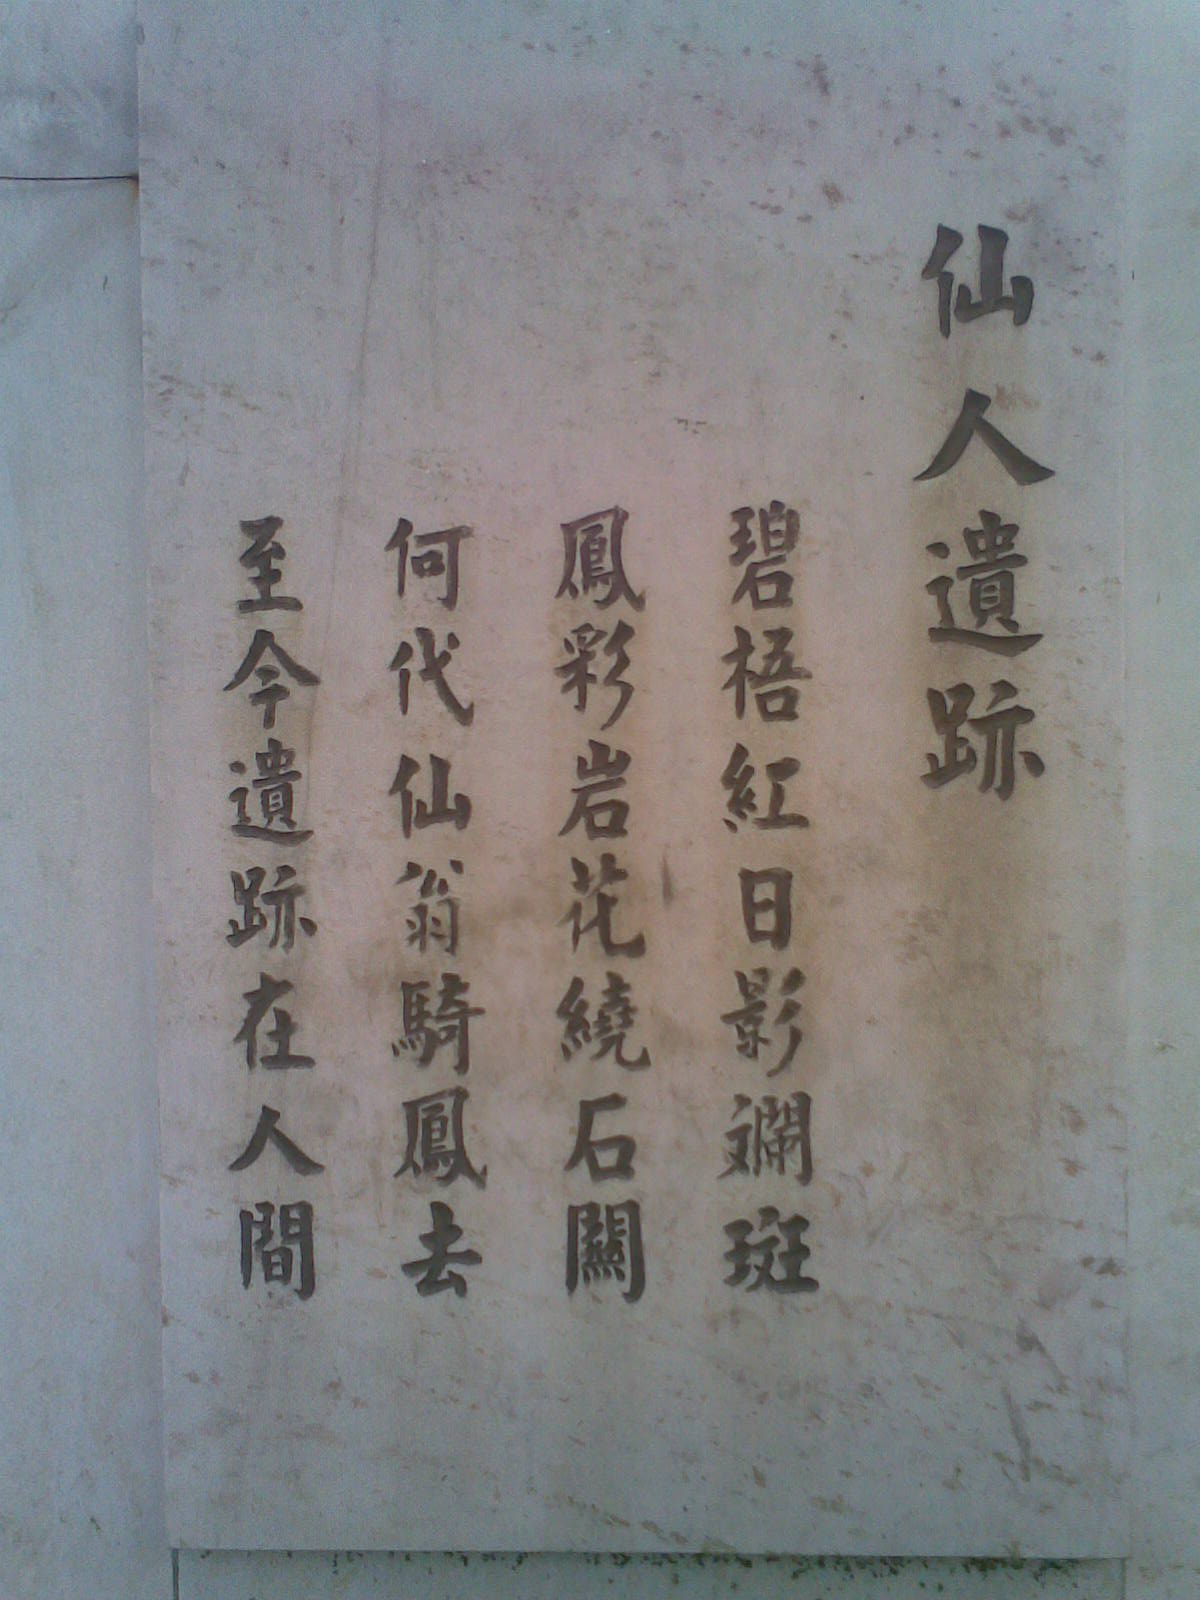 仙人遺跡
碧梧紅日影斕斑
鳳彩岩花繞石闗
何代仙翁騎鳳去
至今遺跡在人間